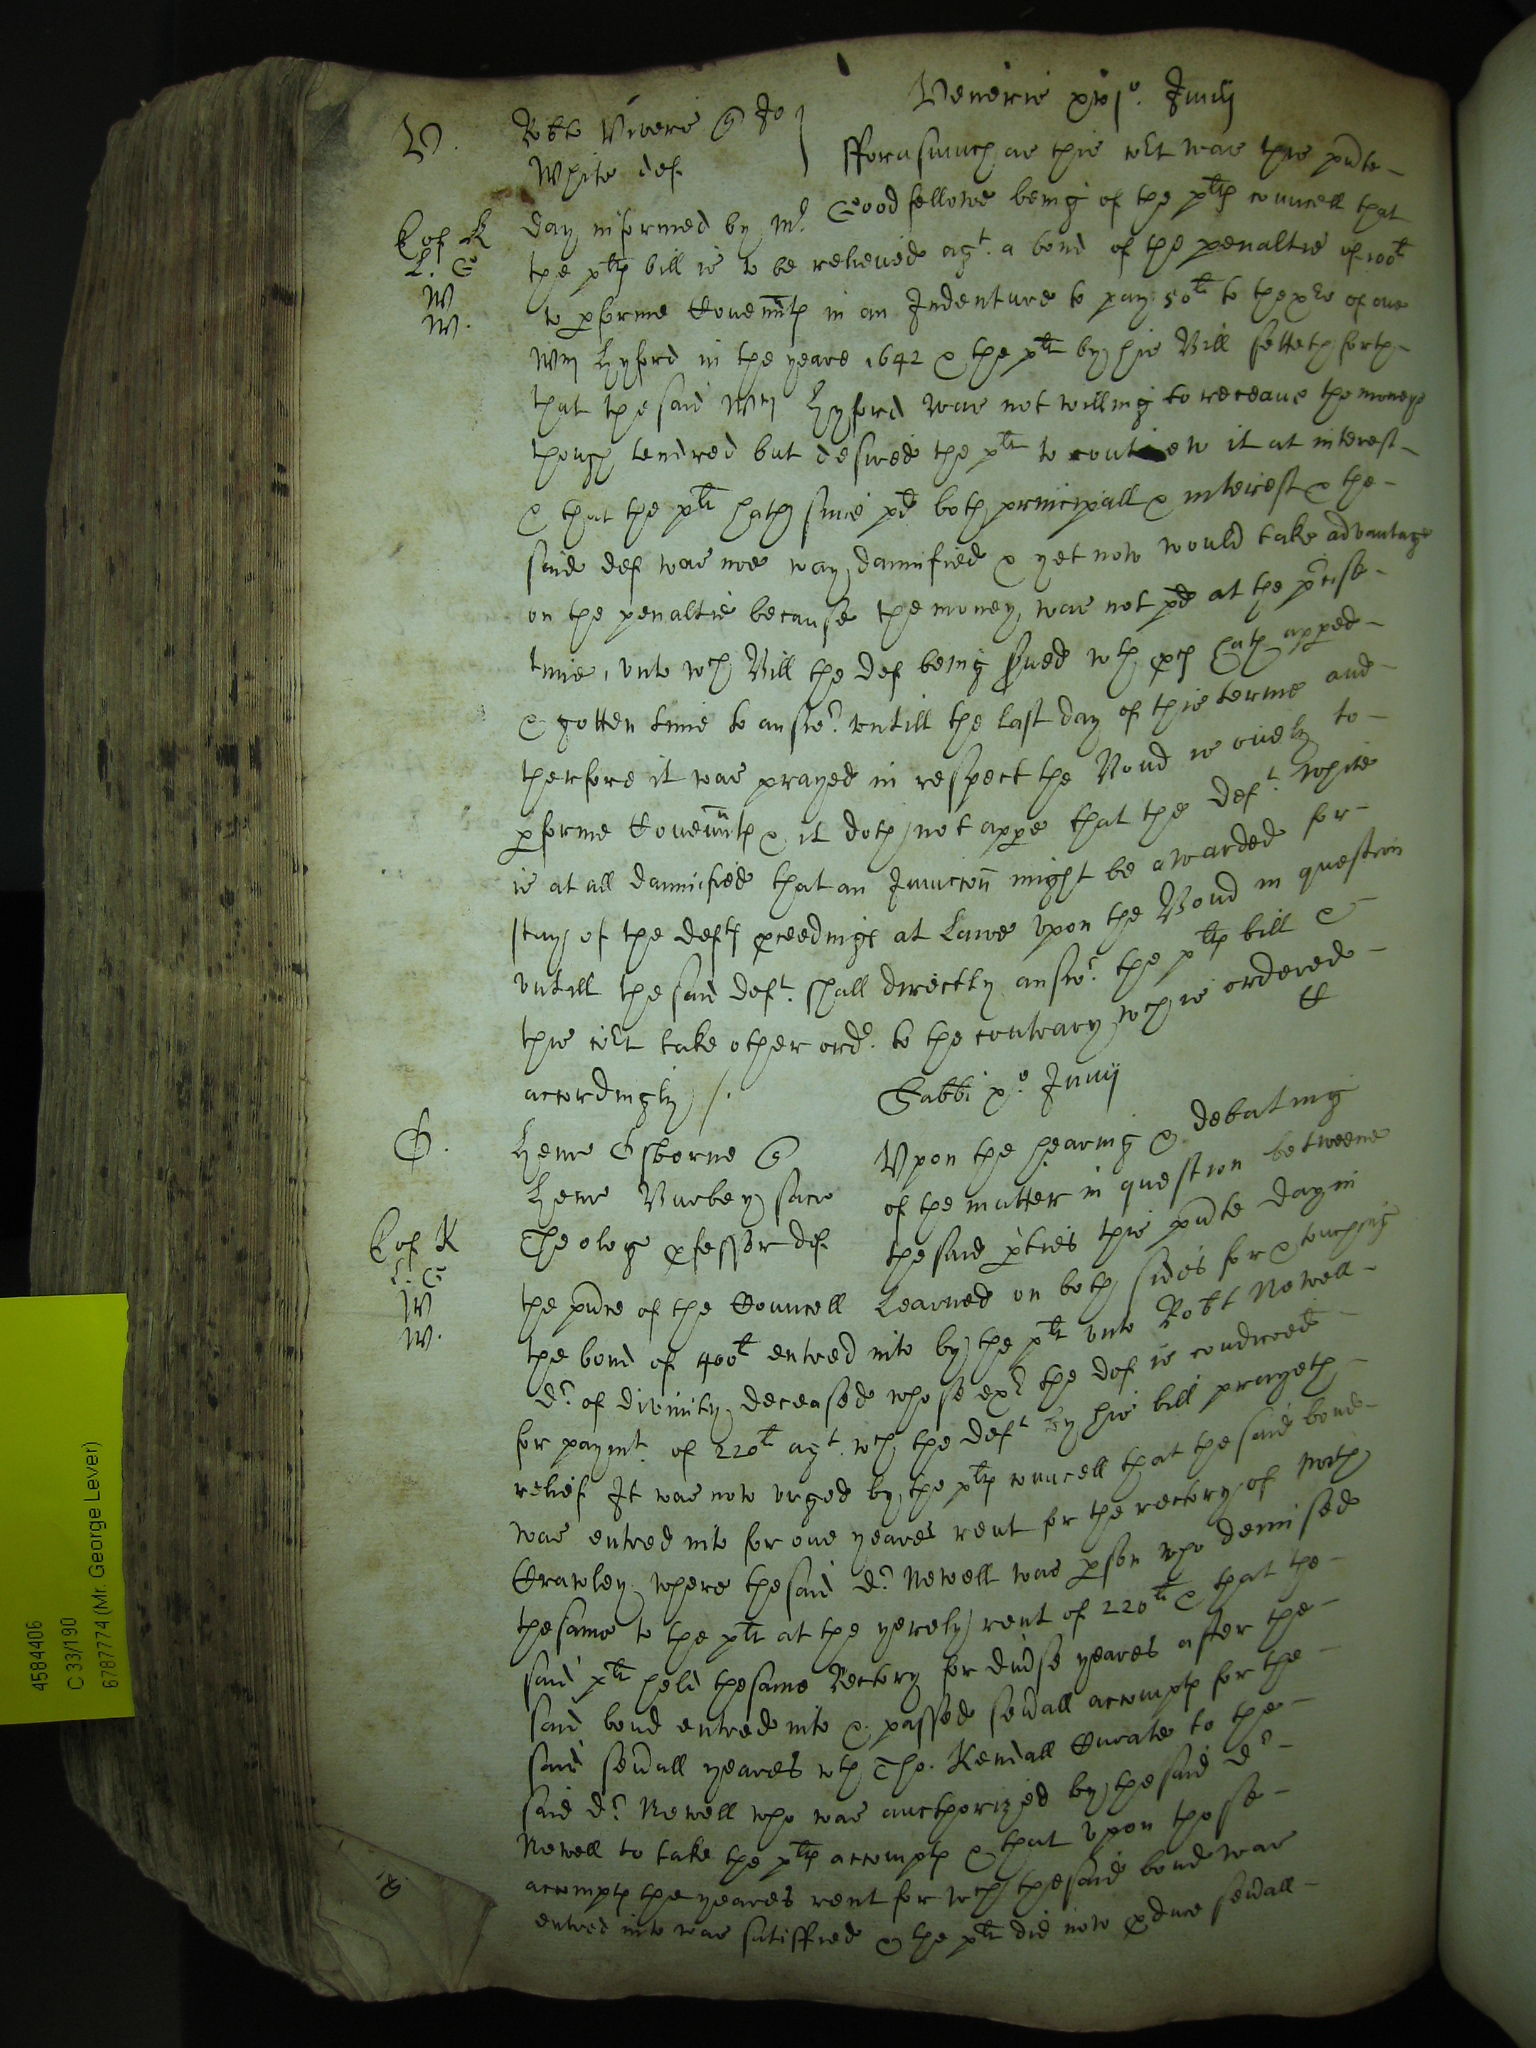 Veneris xvjo. Junij
V. Robtus Vivers & Jo
White def. fforasmuch as this cort was this prnte
L of K day informed by Mr. Goodfellowe being of the pltes councell that
L. G the pltes bill is to be relieved agt. a bond of the penaltie of 100li
W to pforme Covennts in an Indenture to pay 50li to the of one
W. Wm Hyford in the yeare 1642 & the plt by his Bill setteth forth
that the said Wm Hyford was not willing to receave the moneys
though tendred but desired the plt to contiew it at interest
& that the plt hath since pd both principall & interest & the
said def was noe way damnified & yet now would take advantage
on the penaltie because the money was not pd at the pcise
time, unto wch Bill the def being served wth pces hath apped
& gotten time to answr. untill the last day of this terme and
therfore it was prayed in respect the Bond is onely to
pforme Covennts & it doth not appe that the Deft. White
is at all damnified that an Iniuccon might be awarded for
stay of the Defts pceedings at Lawe upon the Bond in question
untill the said Deft. shall directly answr. the pltes bill &
this cort take other ordr. to the contrary wch is ordered
accordingly /.
Sabbi xo. Junij
O. Henr Osborne & Upon the hearing & debating
Henr Burbey sacr of the matter in question betweene
L of K Theolog pfessor def. the said pties this prnte day in
L. G the prnce of the Councell Learned on both sides for & touching
W the bond of 400li entred into by the plt unto Robt Newell
W. Dr. of divinity deceased whose exr the def is condiconed
for paymt. of 220li agt. wch the deft by his bill prayeth
relief It was now urged by the pltes councell that the said bond
was entred into for one yeares rent for the rectory of North
Crawley where the said Dr. Newell was pson who demised
the same to the plt at the yerely rent of 220li & that the
said plt held the same Rectory for divse yeares after the
said bond entred into & passed sevall accompts for the
said sevall yeares wth Tho. Kendall Curate to the
said Dr. Newell who was aucthorized by the said Dr.
Newell to take the pltes accompts & that upon those
accompts the yeares rent for wch the said bond was
entred into was satisfied & the plt did now pduce sevall
4584406
C 33/190
6787774 (Mr. George Lever)